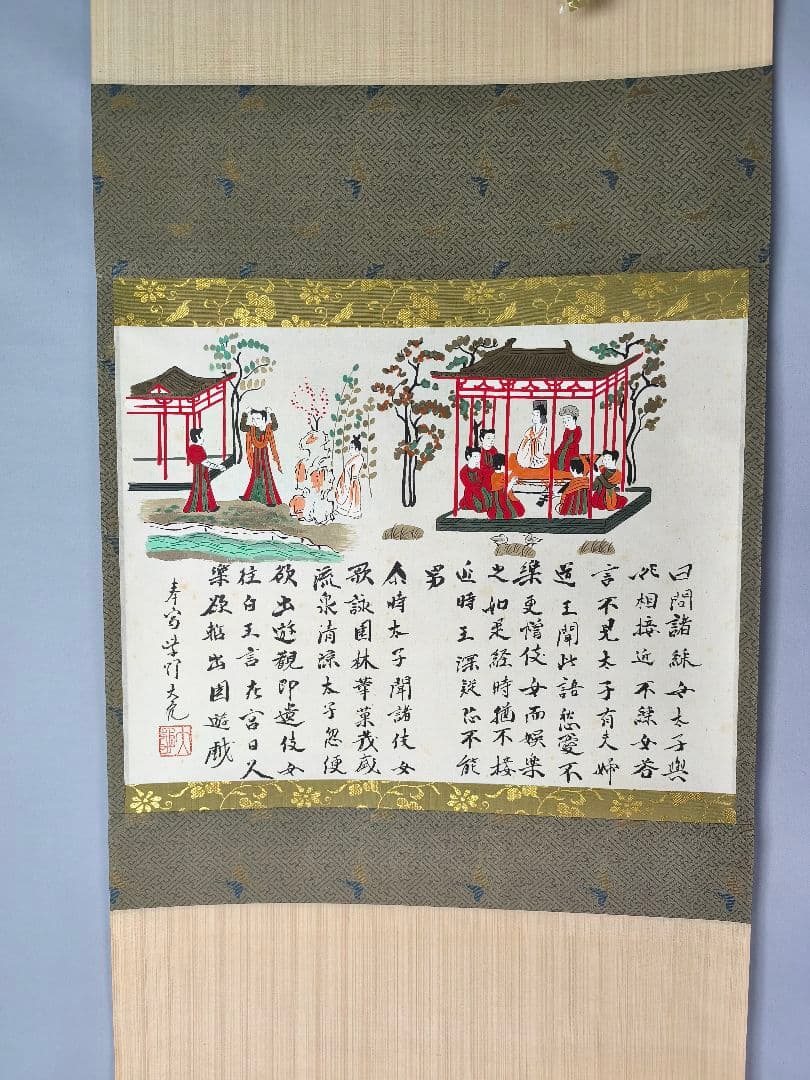 曰問諸婇女太子與
此相接近不婇女答
言不見太子有夫婦
道王聞此語愁憂不
樂更增伎女而娛樂
之如是経時猶不接
近時王深疑恐不能
男
尒時太子聞諸伎女
歌詠園林華菓茂盛
流泉清涼太子忽便
欲出遊觀即遣伎女
往白王言在宮日久
樂欲暫出園遊戲
奉寫